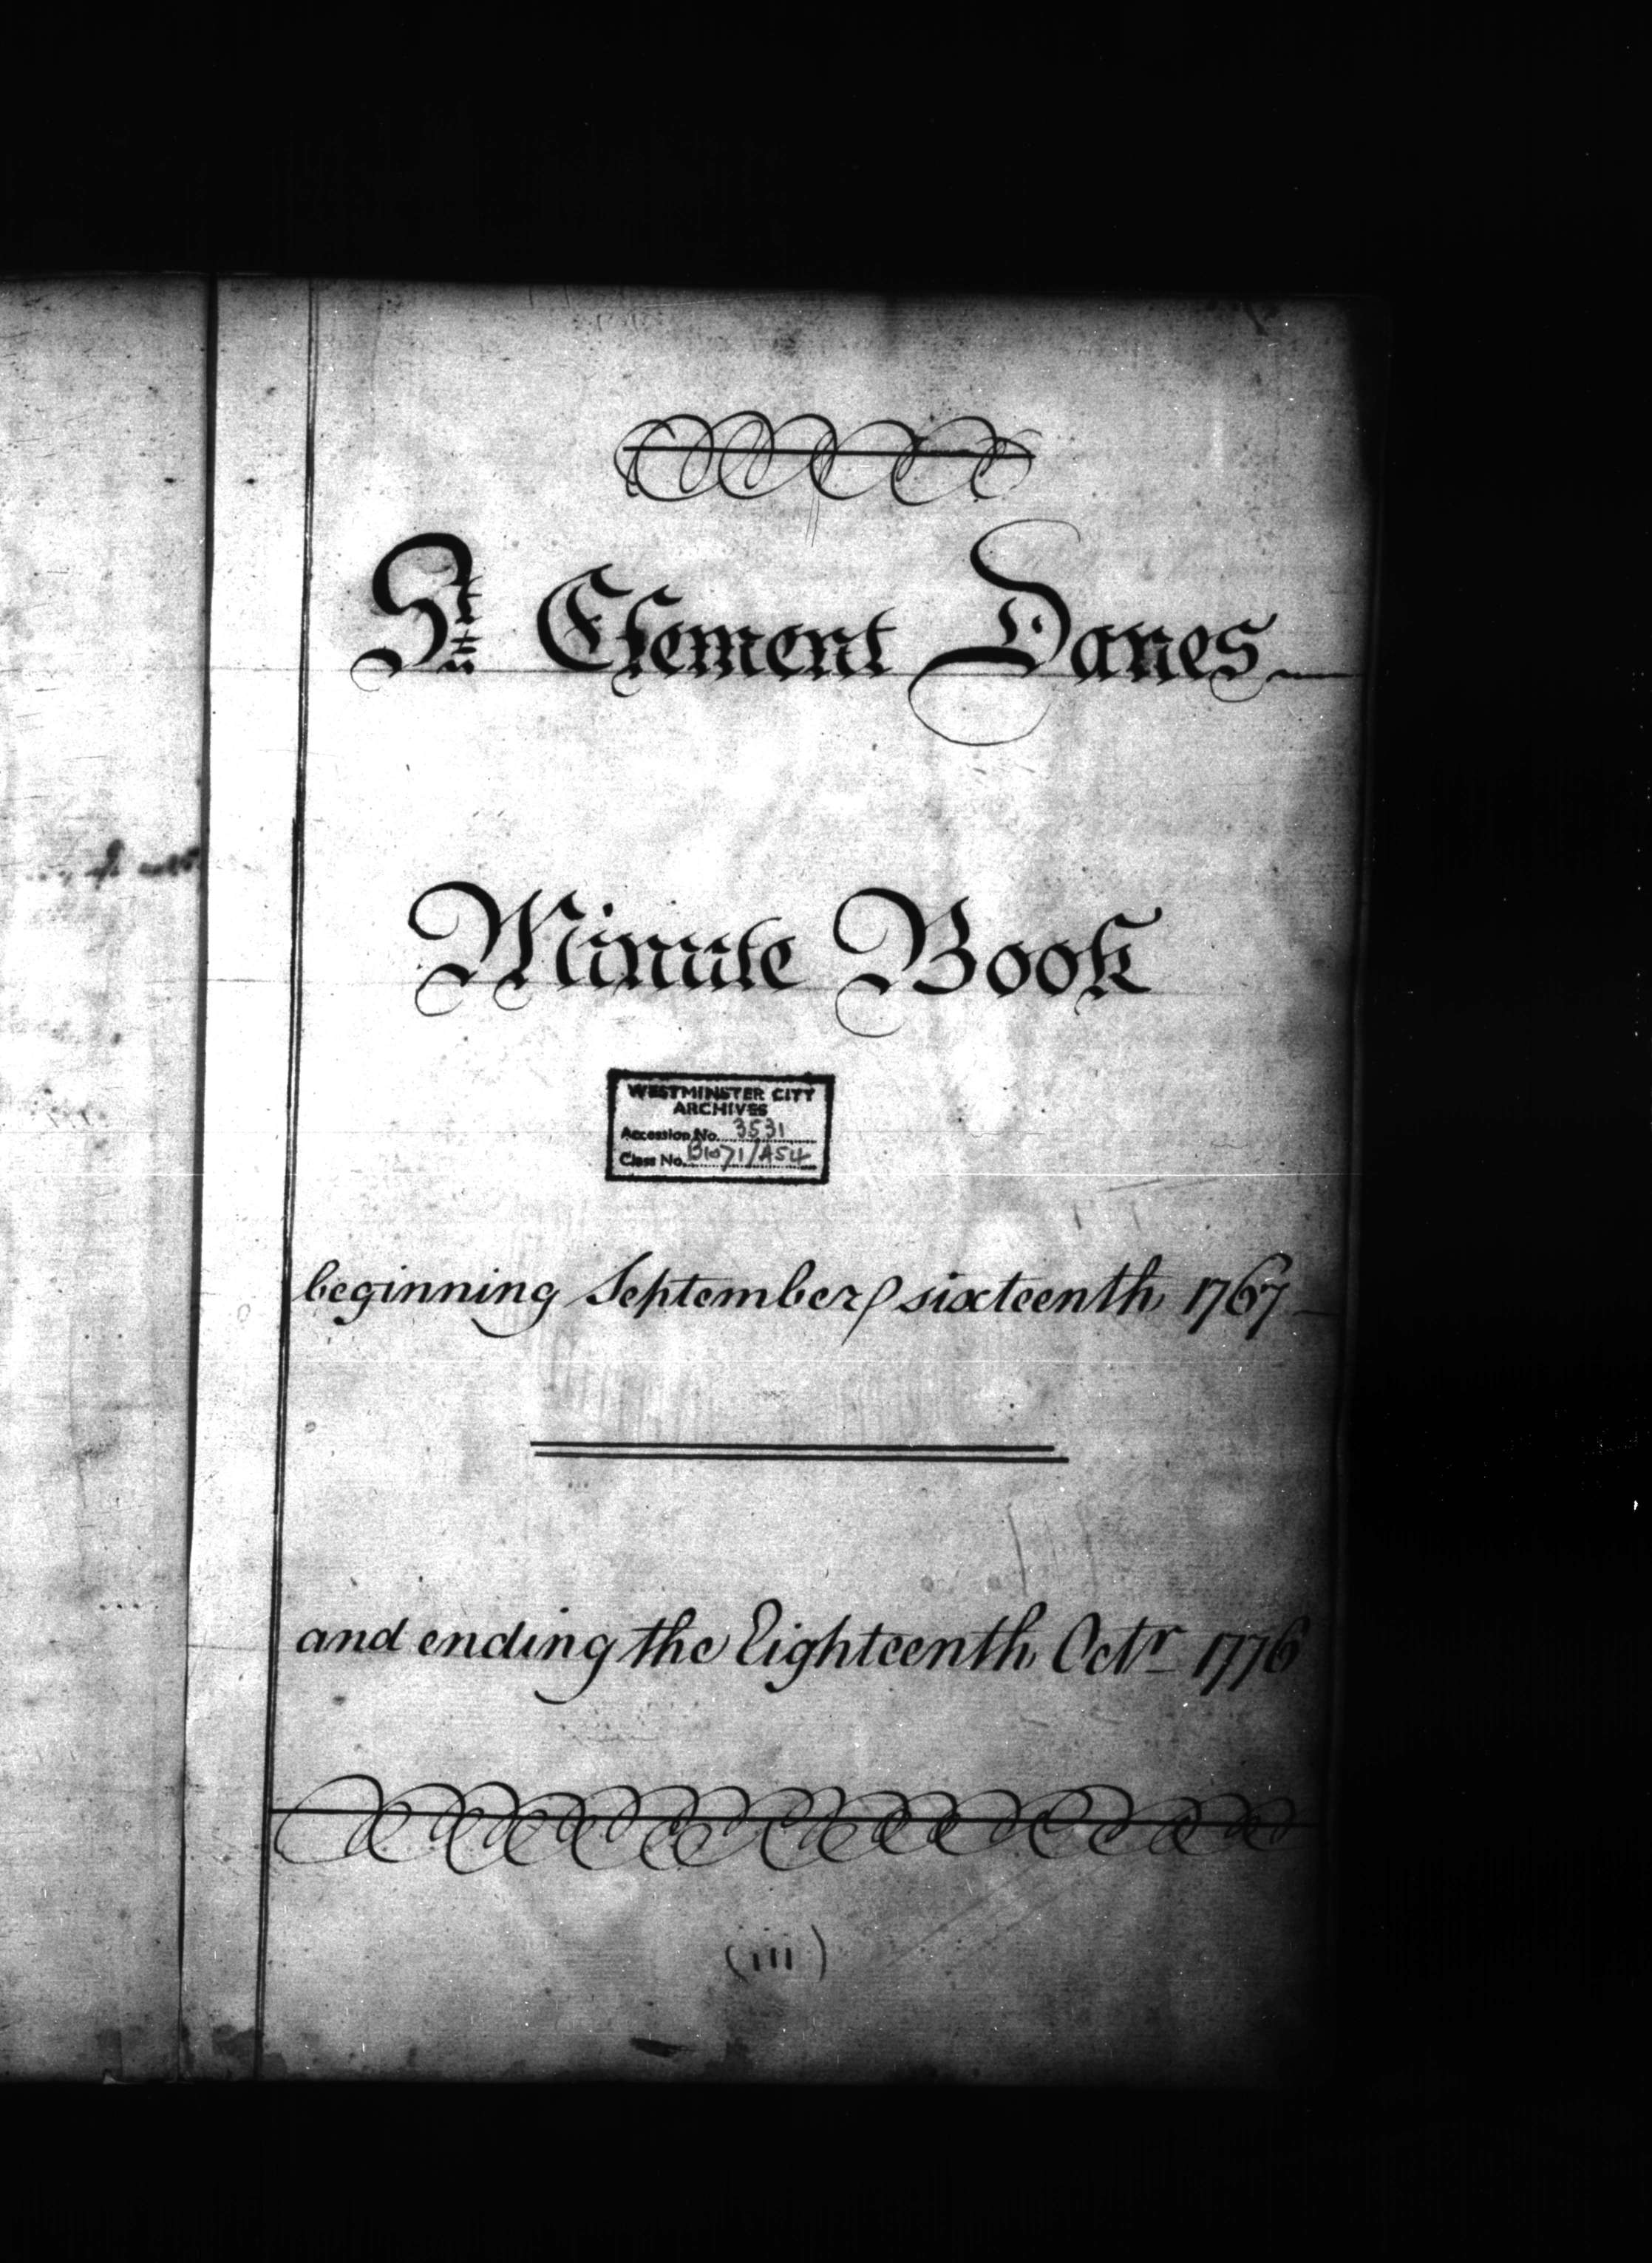 St Clement Danes
Minute Book
WESTMINSTER CITY
ARCHIVES
Accession No. 3531
Class No. B1071/A54
beginning September sixteenth 1767
and ending the Eighteenth Octr 1776
(iii)